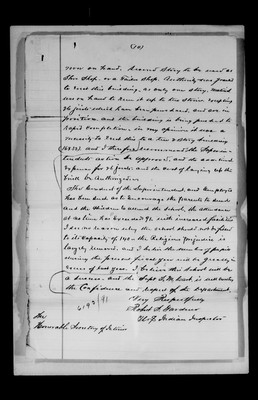 (10)
now on hand. Second Story to be used as
Shoe Shop or a Tailor Shop. Authority was granted
to erect this building, as only one story, material
on hand to run it up to two stories excepting
36 joists which have been purchased, and are in
position and the building is being pushed to
rapid completion, in my opinion it was a
necessity to erect this to a two story building
and I therefore recommend the Superin-
tendents action be approved, and the additional
expense for 36 joists and the cost of carrying up the
be authorized.
The conduct of the Superintendent and Employes
has been such as to encourage the parents to send
and the children to attend the school, the attendance
at as time has exceeded 91, with increased facilities
I see no reason why the school should not be filled
to its capacity of 140. The Religious prejudice is
largely removed. and I believe the number of pupils
during the present fiscal year will be greatly in
excess of last year. I believe this School will be
a success and the Supt
the Confidence and respect of the Department.
Very Respectfully
Robert S. Gardner
U.S. Indian Inspector
6193/91
The
Honorable Secretary of Interior